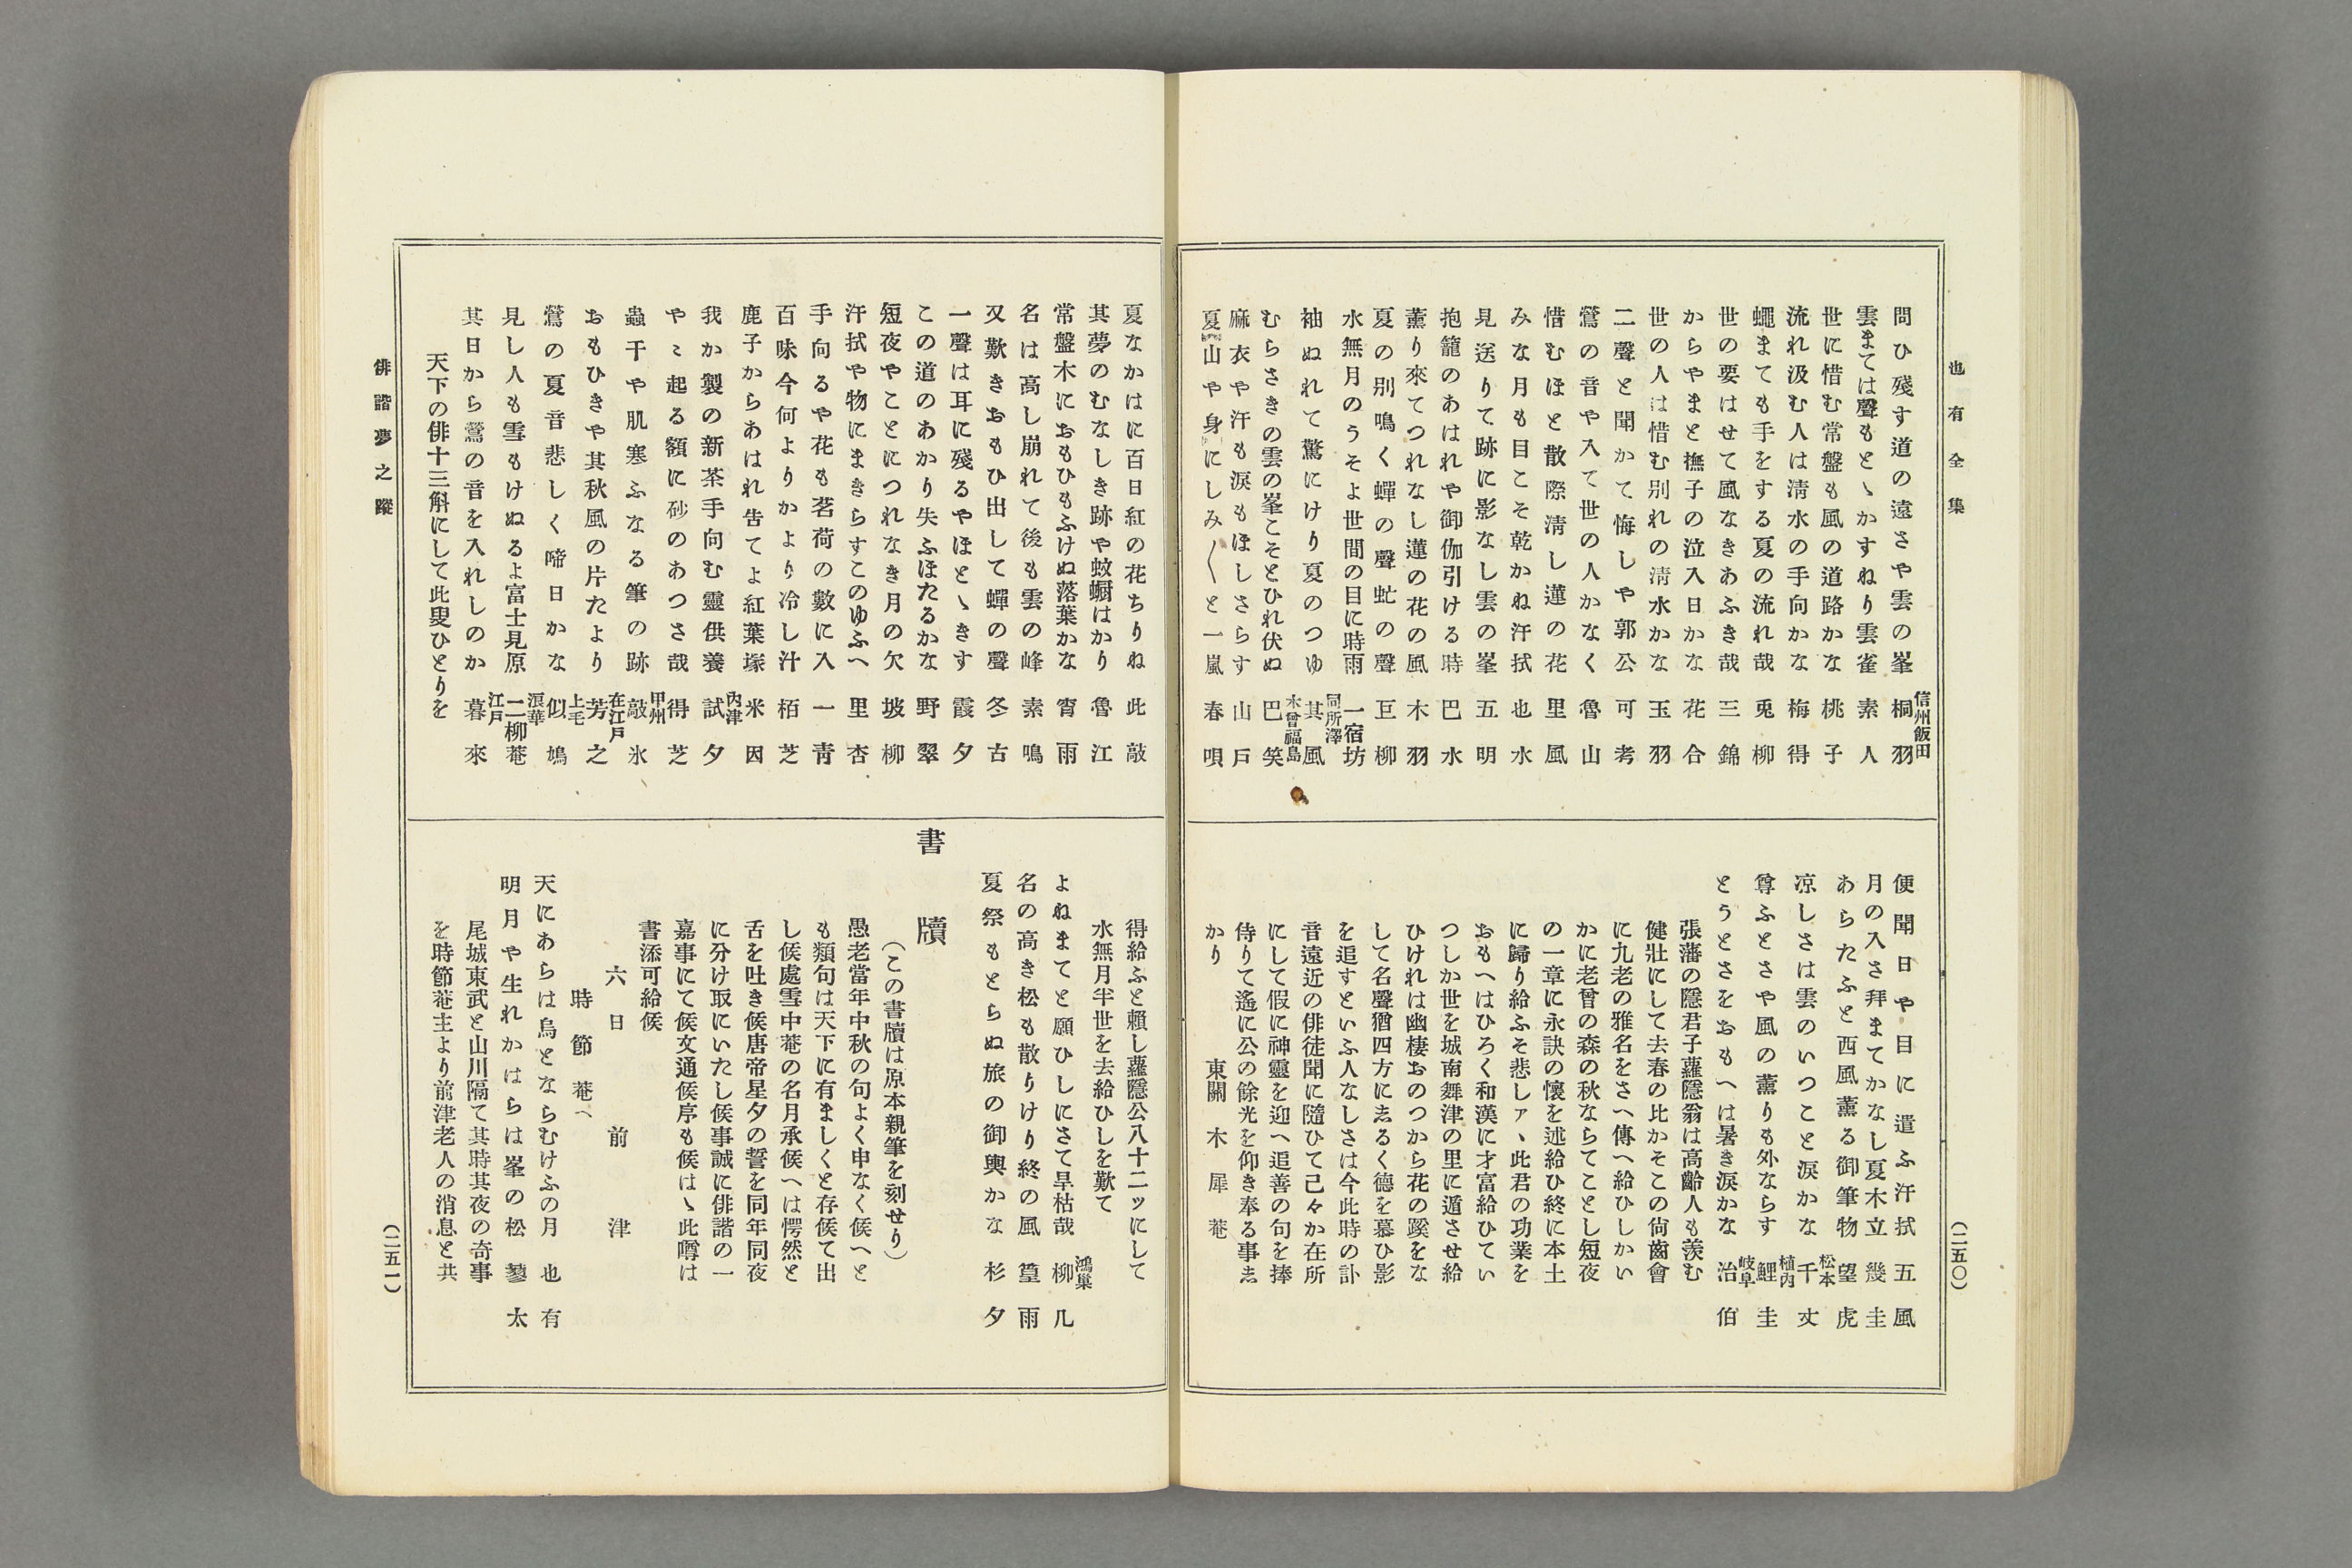 也有全集
信州飯田
問ひ殘す道の遠さや雲の峯 桐羽
雲まては聲もとゝかすねり雲雀 素人
世に惜む常盤も風の道路かな 桃子
流れ汲む人は淸水の手向かな 梅得
蠅まても手をする夏の流れ哉 兎柳
世の要はせて風なきあふき哉 三錦
からやまと撫子の泣入日かな 花合
世の人は惜む別れの淸水かな 玉羽
二聲と聞かて悔しや郭公 可考
鶯の音や入て世の人かなく 魯山
惜むほと散際淸し蓮の花 里風
みな月も目こそ乾かね汗拭 也水
見送りて跡に影なし雲の峯 五明
抱籠のあはれや御伽引ける時 巴水
薰り來てつれなし蓮の花の風 木羽
夏の別鳴く蟬の聲虻の聲 巨柳
水無月のうそよ世間の目に時雨 一宿坊
同所澤
袖ぬれて驚にけり夏のつゆ 其風
木曾福島
むらさきの雲の峯こそとひれ伏ぬ 巴笑
麻衣や汗も淚もほしさらす 山戸
夏山や身にしみ〳〵と一嵐 春唄
便聞日や目に遣ふ汗拭 五風
月の入さ拜まてかなし夏木立 幾圭
あらたふと西風薰る御筆物 望虎
松本
凉しさは雲のいつこと淚かな 千丈
植內
尊ふとさや風の薰りも外ならす 鯉圭
岐阜
とうとさをおもへは暑き淚かな 治伯
張藩の隱君子蘿隱翁は高齡人も羨む
健壯にして去春の比かそこの尙齒會
に九老の雅名をさへ傳へ給ひしかい
かに老曾の森の秋ならてことし短夜
の一章に永訣の懷を述給ひ終に本土
に歸り給ふそ悲しァヽ此君の功業を
おもへはひろく和漢に才富給ひてい
つしか世を城南舞津の里に遁させ給
ひけれは幽棲おのつから花の蹊をな
して名聲猶四方にゑるく德を慕ひ影
を追すといふ人なしさは今此時の訃
音遠近の俳徒聞に隨ひて己々か在所
にして假に神靈を迎へ追善の句を捧
侍りて遙に公の餘光を仰き奉る事ゑ
かり 東關 木犀菴
(二五〇)
夏なかはに百日紅の花ちりね 此敲
其夢のむなしき跡や蚊幮はかり 魯江
常盤木におもひもふけぬ落葉かな 宵雨
名は高し崩れて後も雲の峰 素鳴
又歎きおもひ出して蟬の聲 冬古
一聲は耳に殘るやほとゝきす 霞夕
この道のあかり失ふほたるかな 野翠
短夜やことにつれなき月の欠 坡柳
汗拭や物にまきらすこのゆふへ 里杏
手向るや花も茗荷の數に入 一靑
百味今何よりかより冷し汁 栢芝
鹿子からあはれ吿てよ紅葉塚 米因
內津
我か製の新茶手向む靈供養 試夕
やゝ起る額に砂のあつさ哉 得芝
甲州
蟲干や肌寒ふなる筆の跡 敲氷
在江戶
おもひきや其秋風の片たより 芳之
上毛
鶯の夏音悲しく啼日かな 似鳩
浪華
見し人も雪もけぬるよ富士見原 二柳菴
江戶
其日から鶯の音を入れしのか 暮來
天下の俳十三斛にして此叟ひとりを
得給ふと賴し蘿隱公八十二ッにして
水無月半世を去給ひしを歎て
鴻巢
よねまてと願ひしにさて旱枯哉 柳几
名の高き松も散りけり終の風 篁雨
夏祭もとらぬ旅の御輿かな 杉夕
書牘
(この書牘は原本親筆を刻せり)
愚老當年中秋の句よく申なく候へと
も類句は天下に有ましくと存候て出
し候處雪中菴の名月承候へは愕然と
舌を吐き候唐帝星夕の誓を同年同夜
に分け取にいたし候事誠に俳諧の一
嘉事にて候文通候序も候はゝ此噂は
書添可給候
六日 前津
時節菴へ
天にあらは鳥とならむけふの月 也有
明月や生れかはらは峯の松 蓼太
尾城東武と山川隔て其時其夜の奇事
を時節菴主より前津老人の消息と共
俳諧夢之蹤
(二五一)